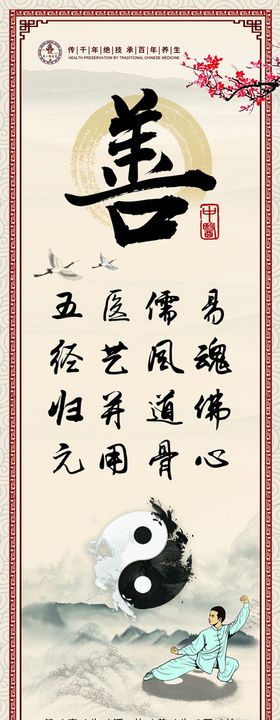 传千年绝技承百年养生
HEALTH PRESERVATION BY TRADITIONAL CHINESE MEDICINE
善
中醫
易魂佛心
儒风道骨
医艺并用
五经归元